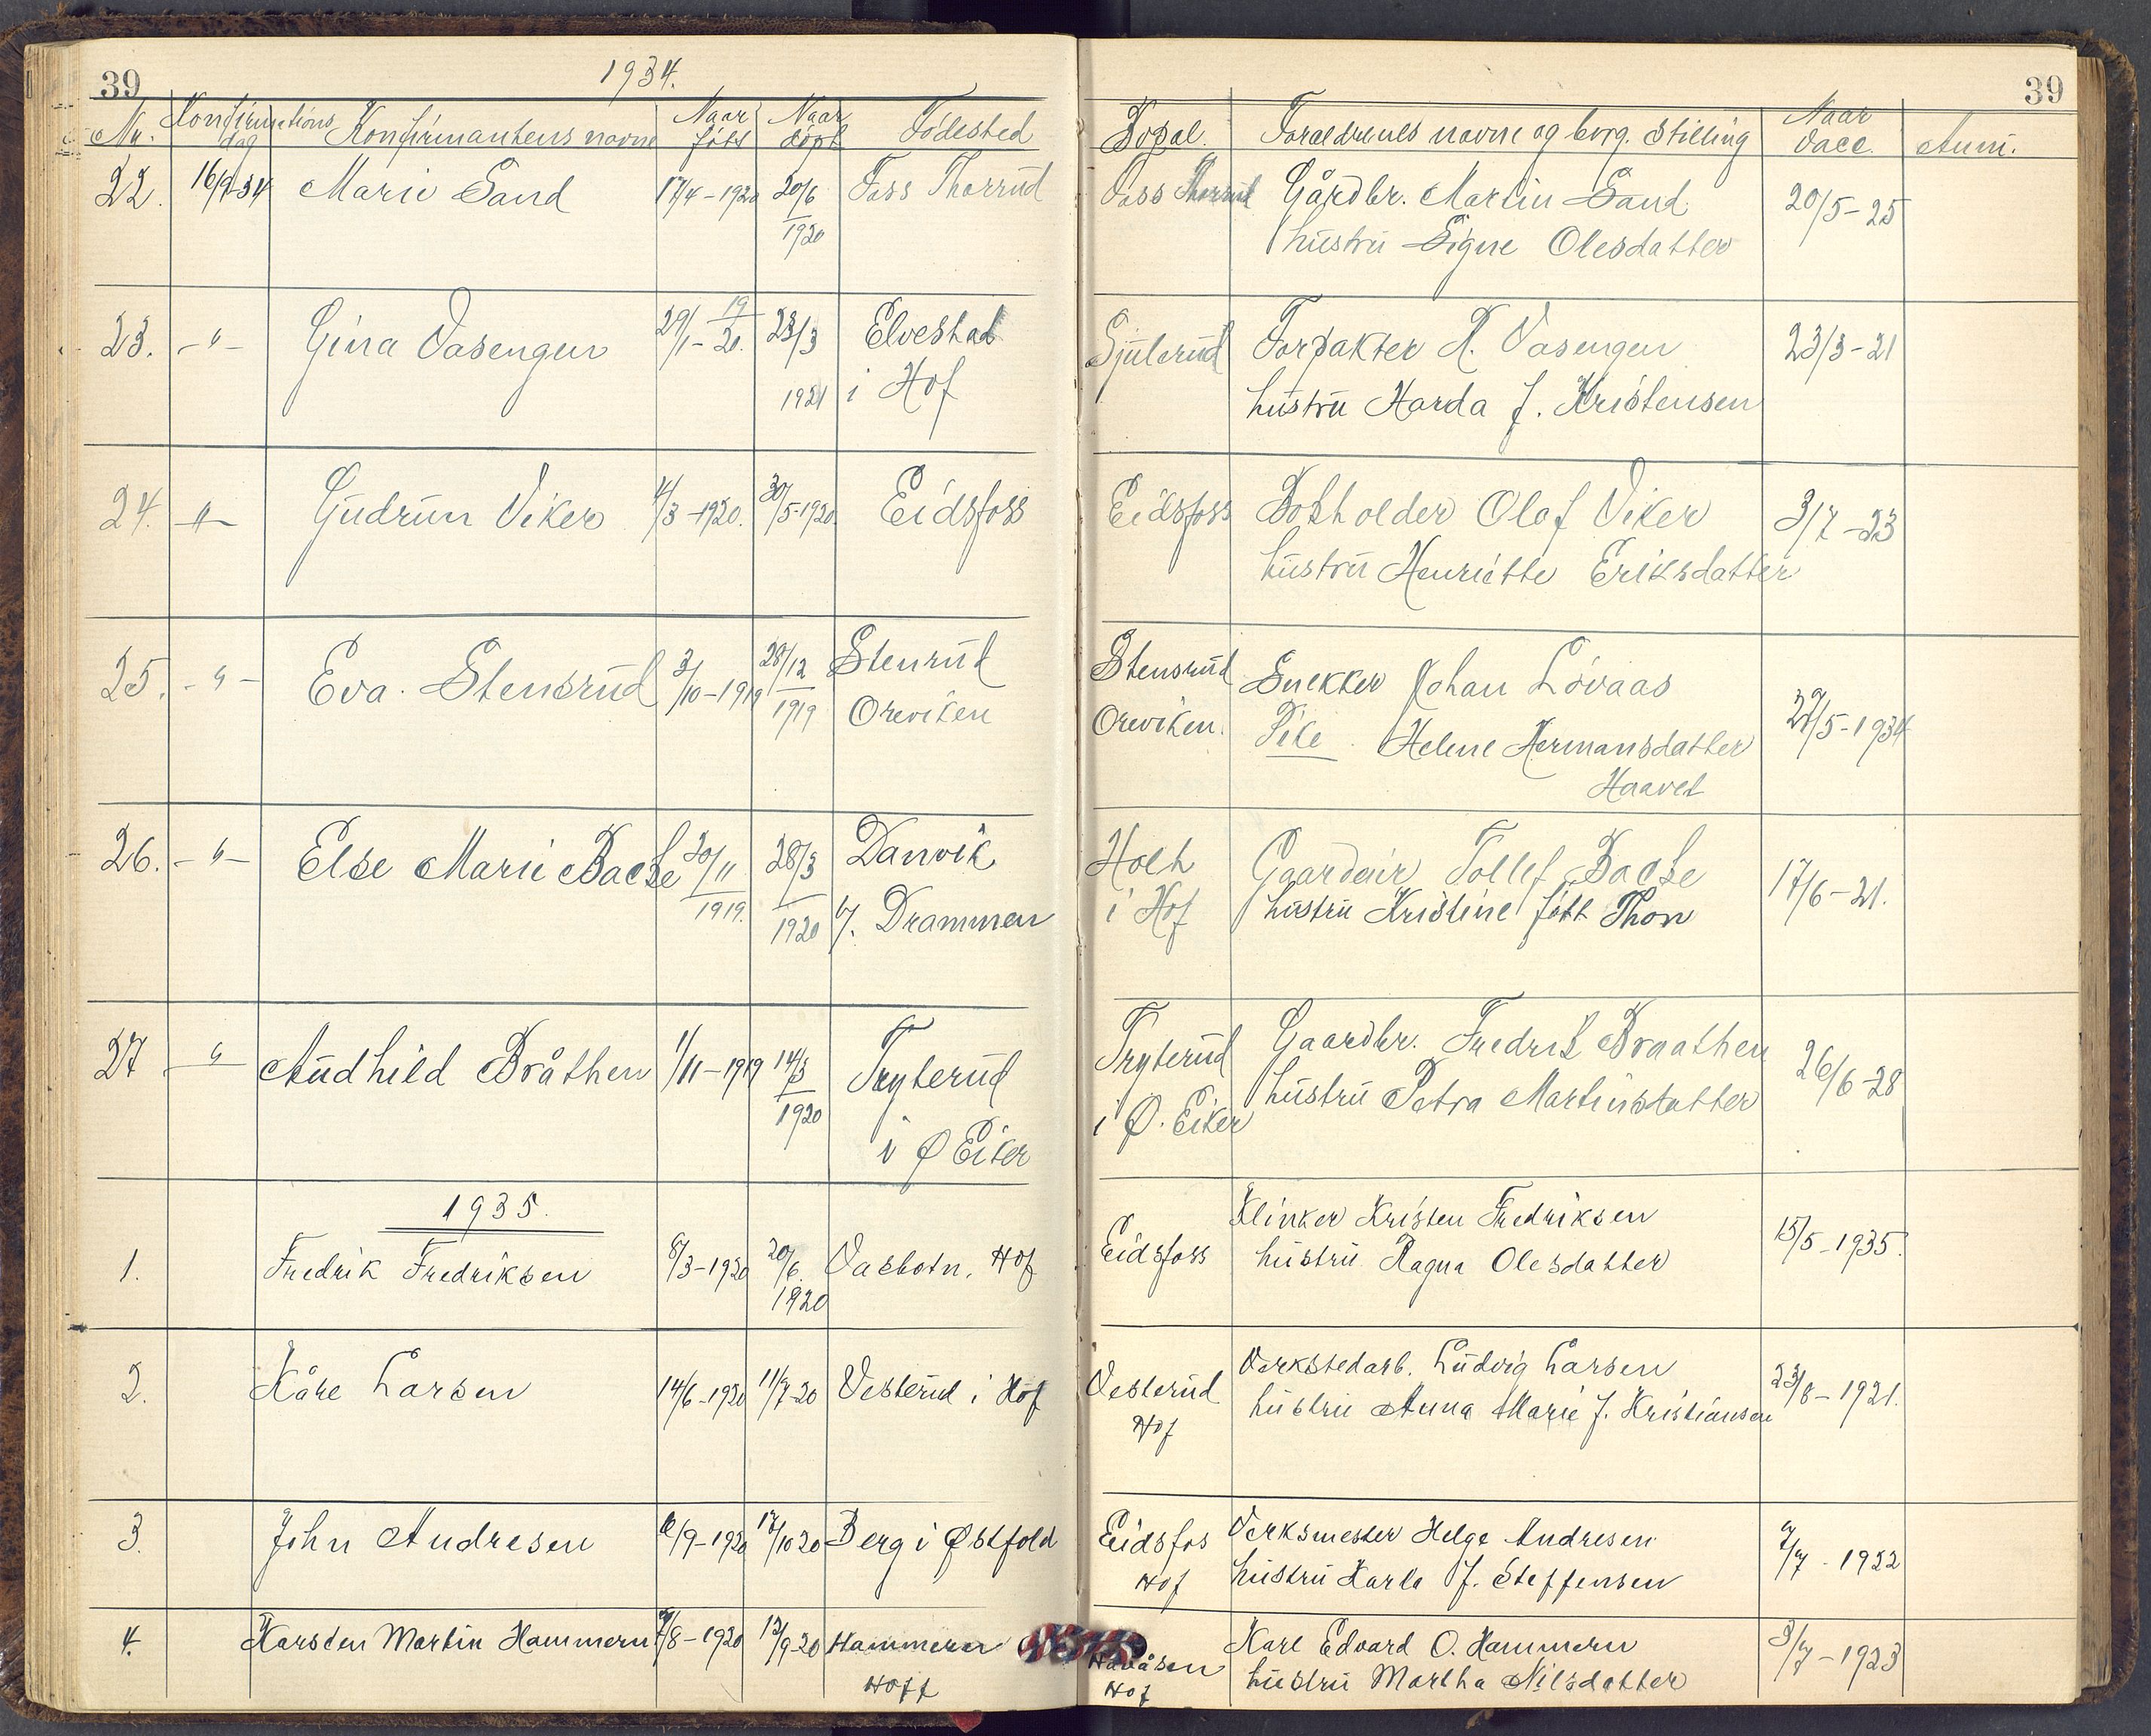 39
1934.
Nr. Konfirmations dag Konfirmantens navne Naar født Naar døpt Fødested
22. 16/9-34 Marie Sand 17/4-1920 20/6 1920 Foss Thorrud
23. -"- Gina Vasengen 29/1-1920. 23/3 1921 Elvestad
i Hof
24. -"- Gudrun Viker 4/3-1920. 30/5-1920 Eidsfoss
25. -"- Eva Stensrud 3/10-1919 28/12 1919 Stenrud
Oreviken
26. -"- Else Marie Backe 20/11 1919. 28/3 1920 Danvik
v/. Drammen
27 -"- Audhild Bråthen 1/11-1919 14/3 1920 Tryterud
i Ø Eiker
1935.
1. Fredrik Fredriksen 8/3-1920 20/6. 1920 Vasbotn, Hof
2. Kåre Larsen 14/6-1920 11/7-20 Vesterud i Hof
3. John Andresen /9-1920 17/10 20 Berg i Østfold
4. Karsten Martin Hammern /8-1920 12/9-20 Hammeren
Hoff
39
Bopæl. Foraeldrenes navne og borg. Stilling Naar vacc. Anm.
Foss Thorrud Gårdbr. Martin Sand 20/5-25
hustru Signe Olesdatter
Sjulerud Forpakter K. Vasengen 23/3-21
hustru Harda f. Kristensen
Eidsfoss Bokholder Olaf Viker 3/7-23
hustru Henriette Eriksdatter
Stensrud Snekker Johan Løvaas
Oreviken. Pike Helene Hermansdatter 29/5-1934
Haavet
Holt Gaardeier Tollef Backe 17/6-21.
i Hof hustru Kristine født Thon
Tryterud Gaardbr. Fredrik Braathen 26/6-28
i Ø. Eiker hustru Petra Martinsdatter
Klinker Kristen Fredriksen 15/5-1935.
Eidsfoss hustru Ragna Olesdatter
Verkstedarb. Ludvig Larsen 23/8-1921.
Vesterud hustru Anna Marie f. Kristiansen
Hof
Eidsfos Verksmester Helge Andresen /7-1922
Hof hustru Karla f. Steffensen
Karl Edvard O. Hammern 3/7-1923
Havåsen hustru Martha Nilsdatter
Hof